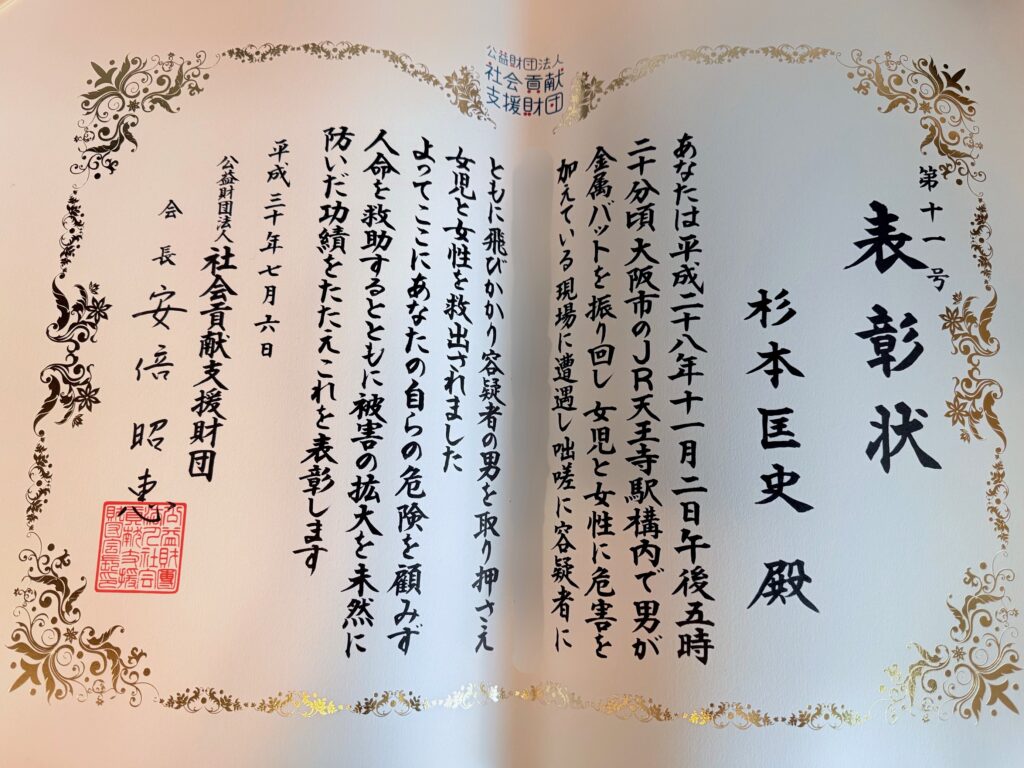 公益財団法人
社会貢献
支援財団
第十一号
表彰状
杉本匡史 殿
あなたは平成二十八年十一月二日午後五時
二十分頃大阪市のJR天王寺駅構内で男が
金属バットを振り回し 女児と女性に危害を
加えている現場に遭遇し咄嗟に容疑者に
ともに飛びかかり容疑者の男を取り押さえ
女児と女性を救出されました
よってここにあなたの自らの危険を顧みず
人命を救助するとともに被害の拡大を未然に
防いだ功績をたたえこれを表彰します
平成三十年七月六日
公益財団法人 社会貢献支援財団
会長 安倍昭恵